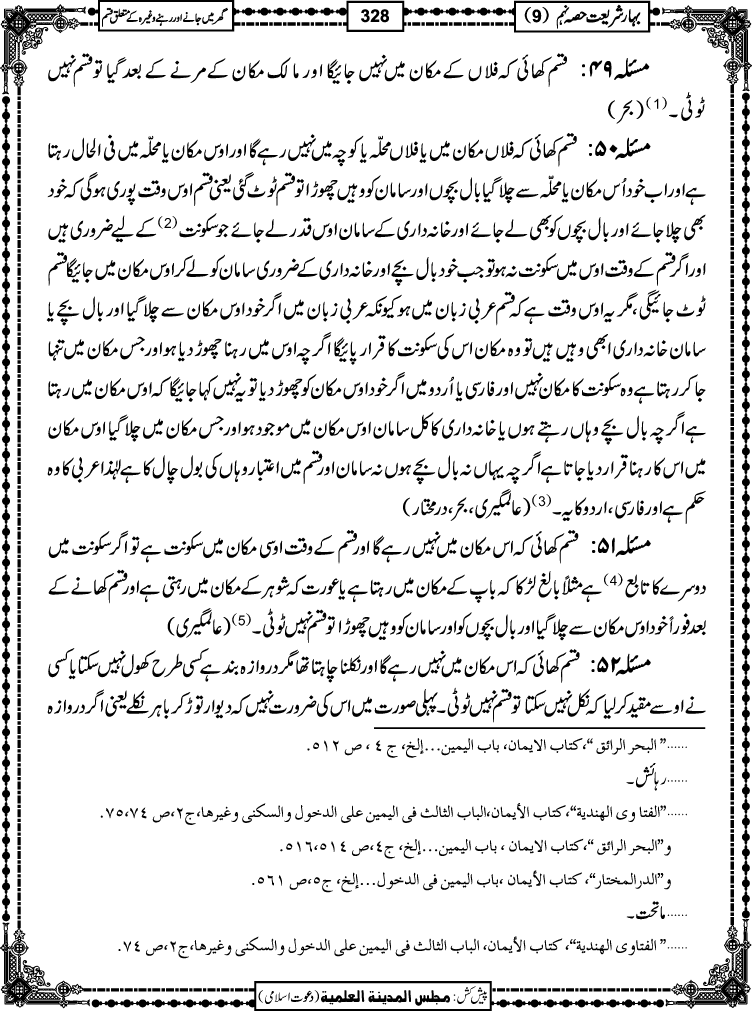 بہارِ شریعت حصہ نہم (9)
328
گھر میں جانے اور رہنے وغیرہ کے متعلق قسم
مسئلہ ۴۹: قسم کھائی کہ فلاں کے مکان میں نہیں جائیگا اور مالک مکان کے مرنے کے بعد گیا تو قسم نہیں
ٹوٹی۔(1) (بحر)
مسئلہ ۵۰: قسم کھائی کہ فلاں مکان میں یا فلاں محلّہ یا کوچہ میں نہیں رہے گا اور اوس مکان یا محلّہ میں فی الحال رہتا
ہے اور اب خود اُس مکان یا محلّہ سے چلا گیا بال بچوں اور سامان کو وہیں چھوڑا تو قسم ٹوٹ گئی یعنی قسم اوس وقت پوری ہوگی کہ خود
بھی چلا جائے اور بال بچوں کو بھی لے جائے اور خانہ داری کے سامان اوس قدر لے جائے جو سکونت (2) کے لیے ضروری ہیں
اور اگر قسم کے وقت اوس میں سکونت نہ ہو تو جب خود بال بچے اور خانہ داری کے ضروری سامان کو لے کر اوس مکان میں جائیگا قسم
ٹوٹ جائیگی، مگر یہ اوس وقت ہے کہ قسم عربی زبان میں ہو کیونکہ عربی زبان میں اگر خود اوس مکان سے چلا گیا اور بال بچے یا
سامان خانہ داری ابھی وہیں ہیں تو وہ مکان اس کی سکونت کا قرار پائیگا اگرچہ اوس میں رہنا چھوڑ دیا ہو اور جس مکان میں تنہا
جا کر رہتا ہے وہ سکونت کا مکان نہیں اور فارسی یا اُردو میں اگر خود اوس مکان کو چھوڑ دیا تو یہ نہیں کہا جائیگا کہ اوس مکان میں رہتا
ہے اگرچہ بال بچے وہاں رہتے ہوں یا خانہ داری کا کل سامان اوس مکان میں موجود ہو اور جس مکان میں چلا گیا اوس مکان
میں اس کا رہنا قرار دیا جاتا ہے اگرچہ یہاں نہ بال بچے ہوں نہ سامان اور قسم میں اعتبار وہاں کی بول چال کا ہے لہٰذا عربی کا وہ
حکم ہے اور فارسی، اردو کا یہ۔(3) (عالمگیری، بحر، درمختار)
مسئلہ ۵۱: قسم کھائی کہ اس مکان میں نہیں رہے گا اور قسم کے وقت اوسی مکان میں سکونت ہے تو اگر سکونت میں
دوسرے کا تابع (4) ہے مثلاً بالغ لڑکا کہ باپ کے مکان میں رہتا ہے یا عورت کہ شوہر کے مکان میں رہتی ہے اور قسم کھانے کے
بعد فوراً خود اوس مکان سے چلا گیا اور بال بچوں کو اور سامان کو وہیں چھوڑا تو قسم نہیں ٹوٹی۔(5) (عالمگیری)
مسئلہ ۵۲: قسم کھائی کہ اس مکان میں نہیں رہے گا اور نکلنا چاہتا تھا مگر دروازہ بند ہے کسی طرح کھول نہیں سکتا یا کسی
نے اوسے مقید کر لیا کہ نکل نہیں سکتا تو قسم نہیں ٹوٹی۔ پہلی صورت میں اس کی ضرورت نہیں کہ دیوار توڑ کر باہر نکلے یعنی اگر دروازہ
......"البحر الرائق"،كتاب الايمان، باب اليمين...إلخ، ج ٤ ، ص ٥١٢.
......رہائش۔
......"الفتاوى الهندية"،كتاب الأيمان،الباب الثالث فى اليمين على الدخول والسكنى وغيرها،ج٢،ص ٧٥،٧٤.
و"البحر الرائق"، كتاب الايمان ، باب اليمين...إلخ، ج٤،ص ٥١٦،٥١٤.
و"الدرالمختار"، كتاب الأيمان ،باب اليمين فى الدخول...إلخ، ج٥،ص ٥٦١.
......ماتحت۔
......"الفتاوى الهندية"، كتاب الأيمان، الباب الثالث فى اليمين على الدخول والسكنى وغيرها،ج٢،ص ٧٤.
پیش کش: مجلس المدينة العلمية (دعوت اسلامی)